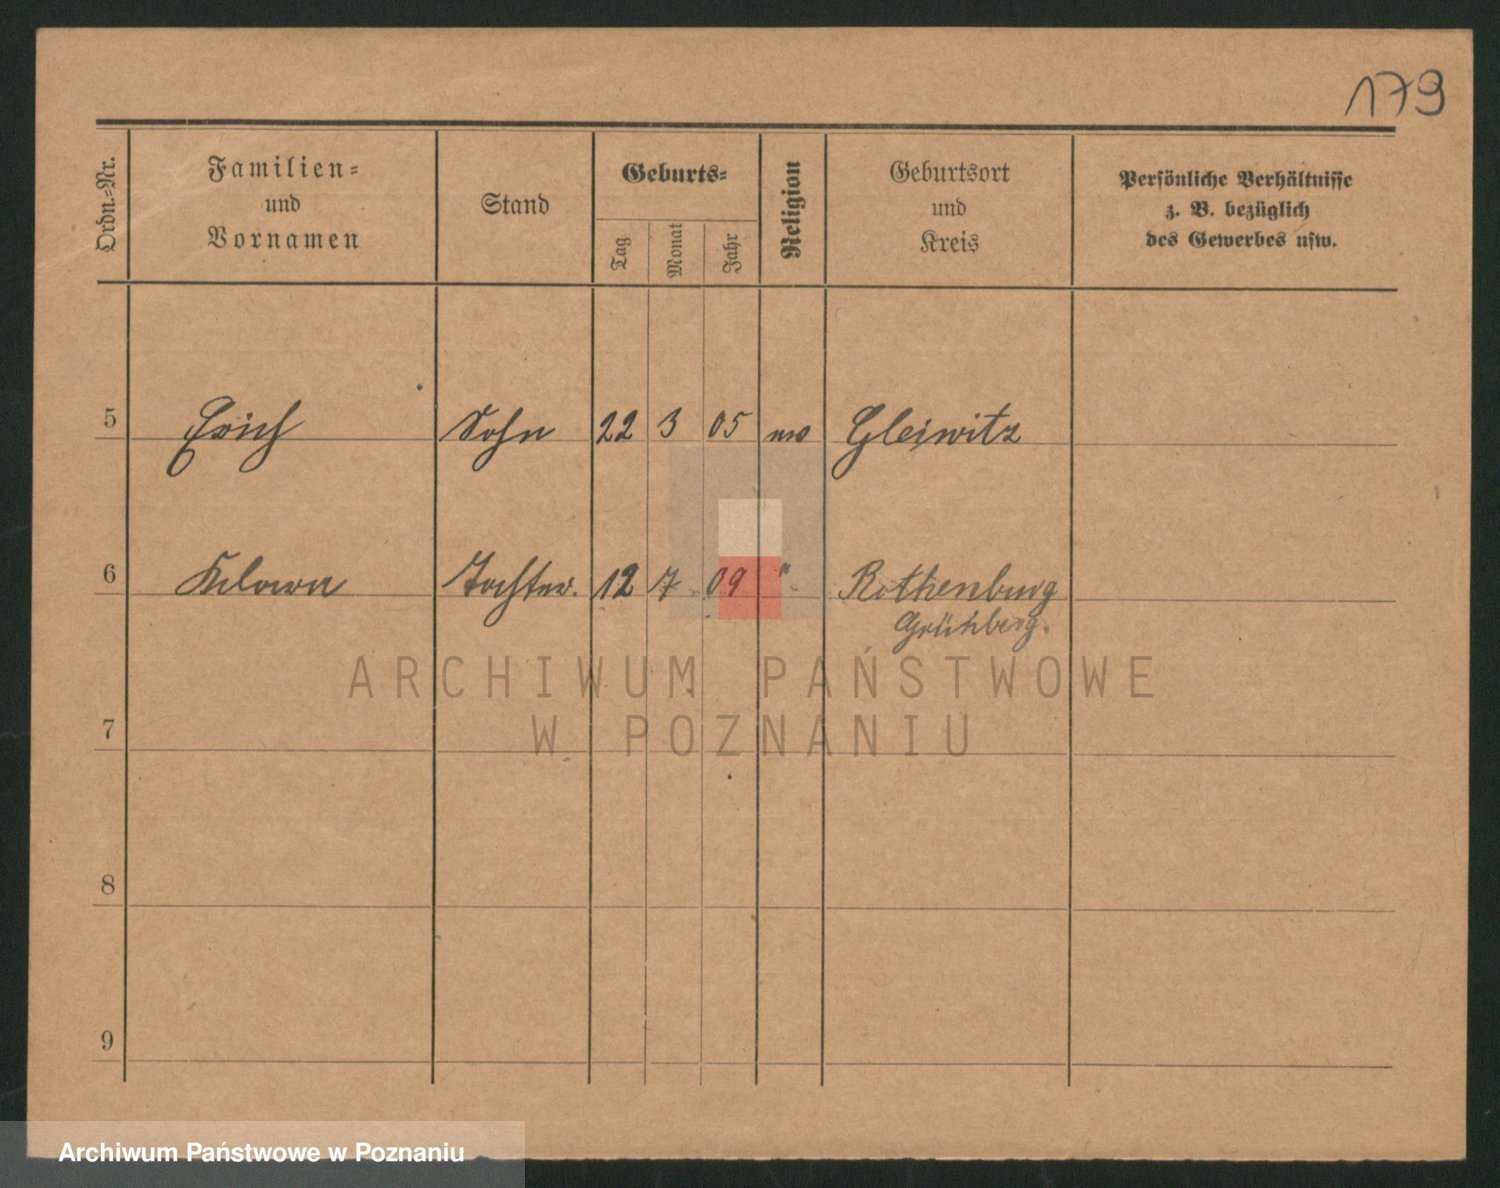 179
Ordn.-Nr.
Familien-
und
Vornamen
Stand
Geburts-
Tag
Monat
Jahr
Religion
Geburtsort
und
Kreis
Persönliche Verhältnisse
z. B. bezüglich
des Gewerbes usw.
5 Erich Sohn 22 3 05 Gleiwitz
6 Tochter. 12 7 09 " Rothenburg
Grünberg.
ARCHIWUM PAŃSTWOWE
W POZNANIU
7
8
9
Archiwum Państwowe w Poznaniu